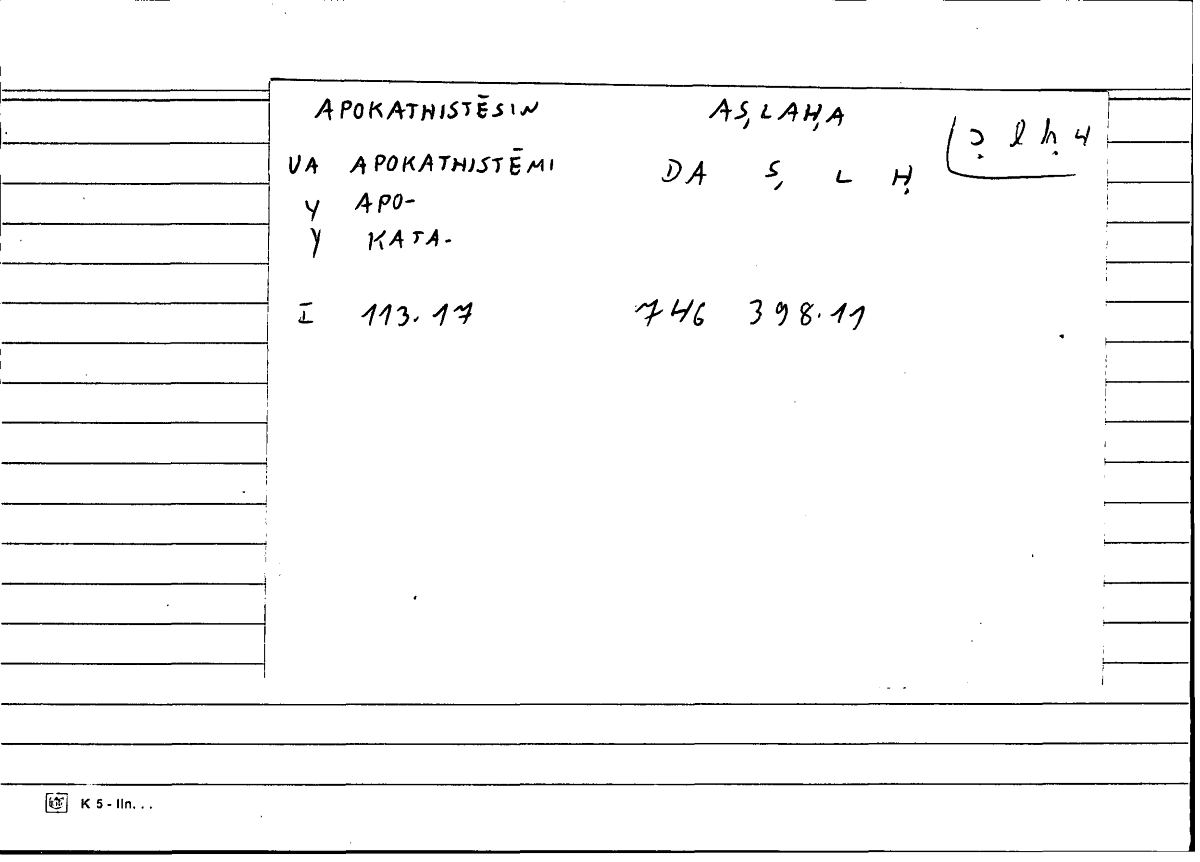 APOKATHISTĒSIN AṢLAḤA
ṣ l ḥ 4
VA APOKATHISTĒMI DA Ṣ L Ḥ
Y APO-
Y KATA-
I 113.17 746 398.11
K 5 - lln...